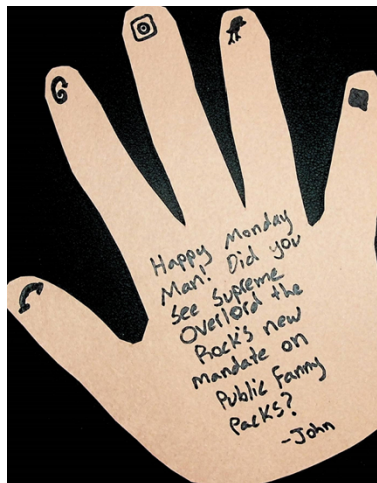 Happy Monday
Man! Did you
See Supreme
Overlord the
Rock's new
mandate on
Public Fanny
Packs?
-John